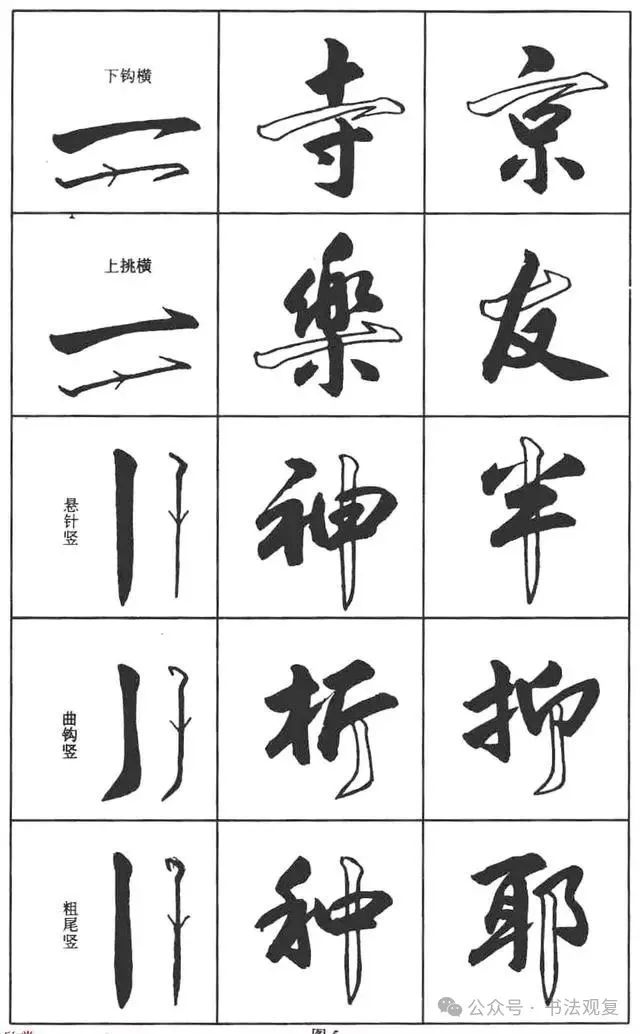 下钩横
寺
京
上挑横
樂
友
悬针竖
神
半
曲钩竖
折
抑
粗尾竖
种
耶
公众号 · 书法观复